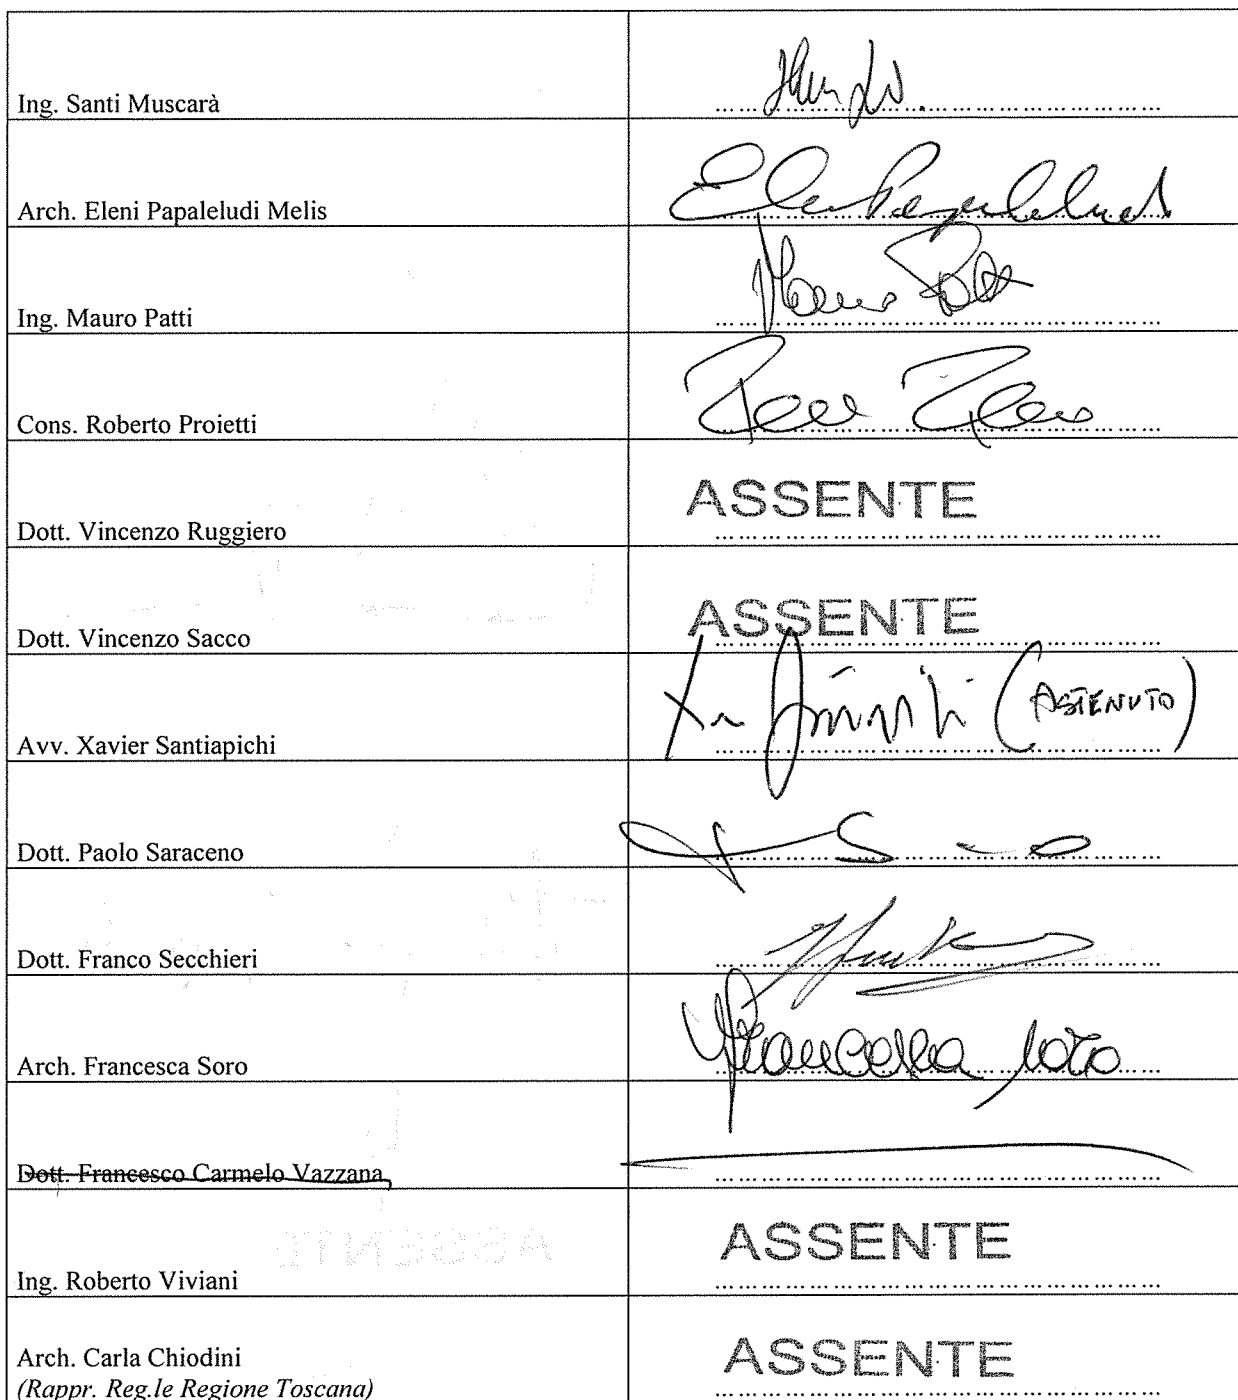 Ing. Santi Muscarà
Arch. Eleni Papaleludi Melis
Ing. Mauro Patti
Mauro Patti
Cons. Roberto Proietti
Dott. Vincenzo Ruggiero
ASSENTE
Dott. Vincenzo Sacco
ASSENTE
Avv. Xavier Santiapichi
(ASTENUTO)
Dott. Paolo Saraceno
Dott. Franco Secchieri
Arch. Francesca Soro
Francesca Soro
Dott. Francesco Carmelo Vazzana
Ing. Roberto Viviani
ASSENTE
Arch. Carla Chiodini
(Rappr. Reg.le Regione Toscana)
ASSENTE